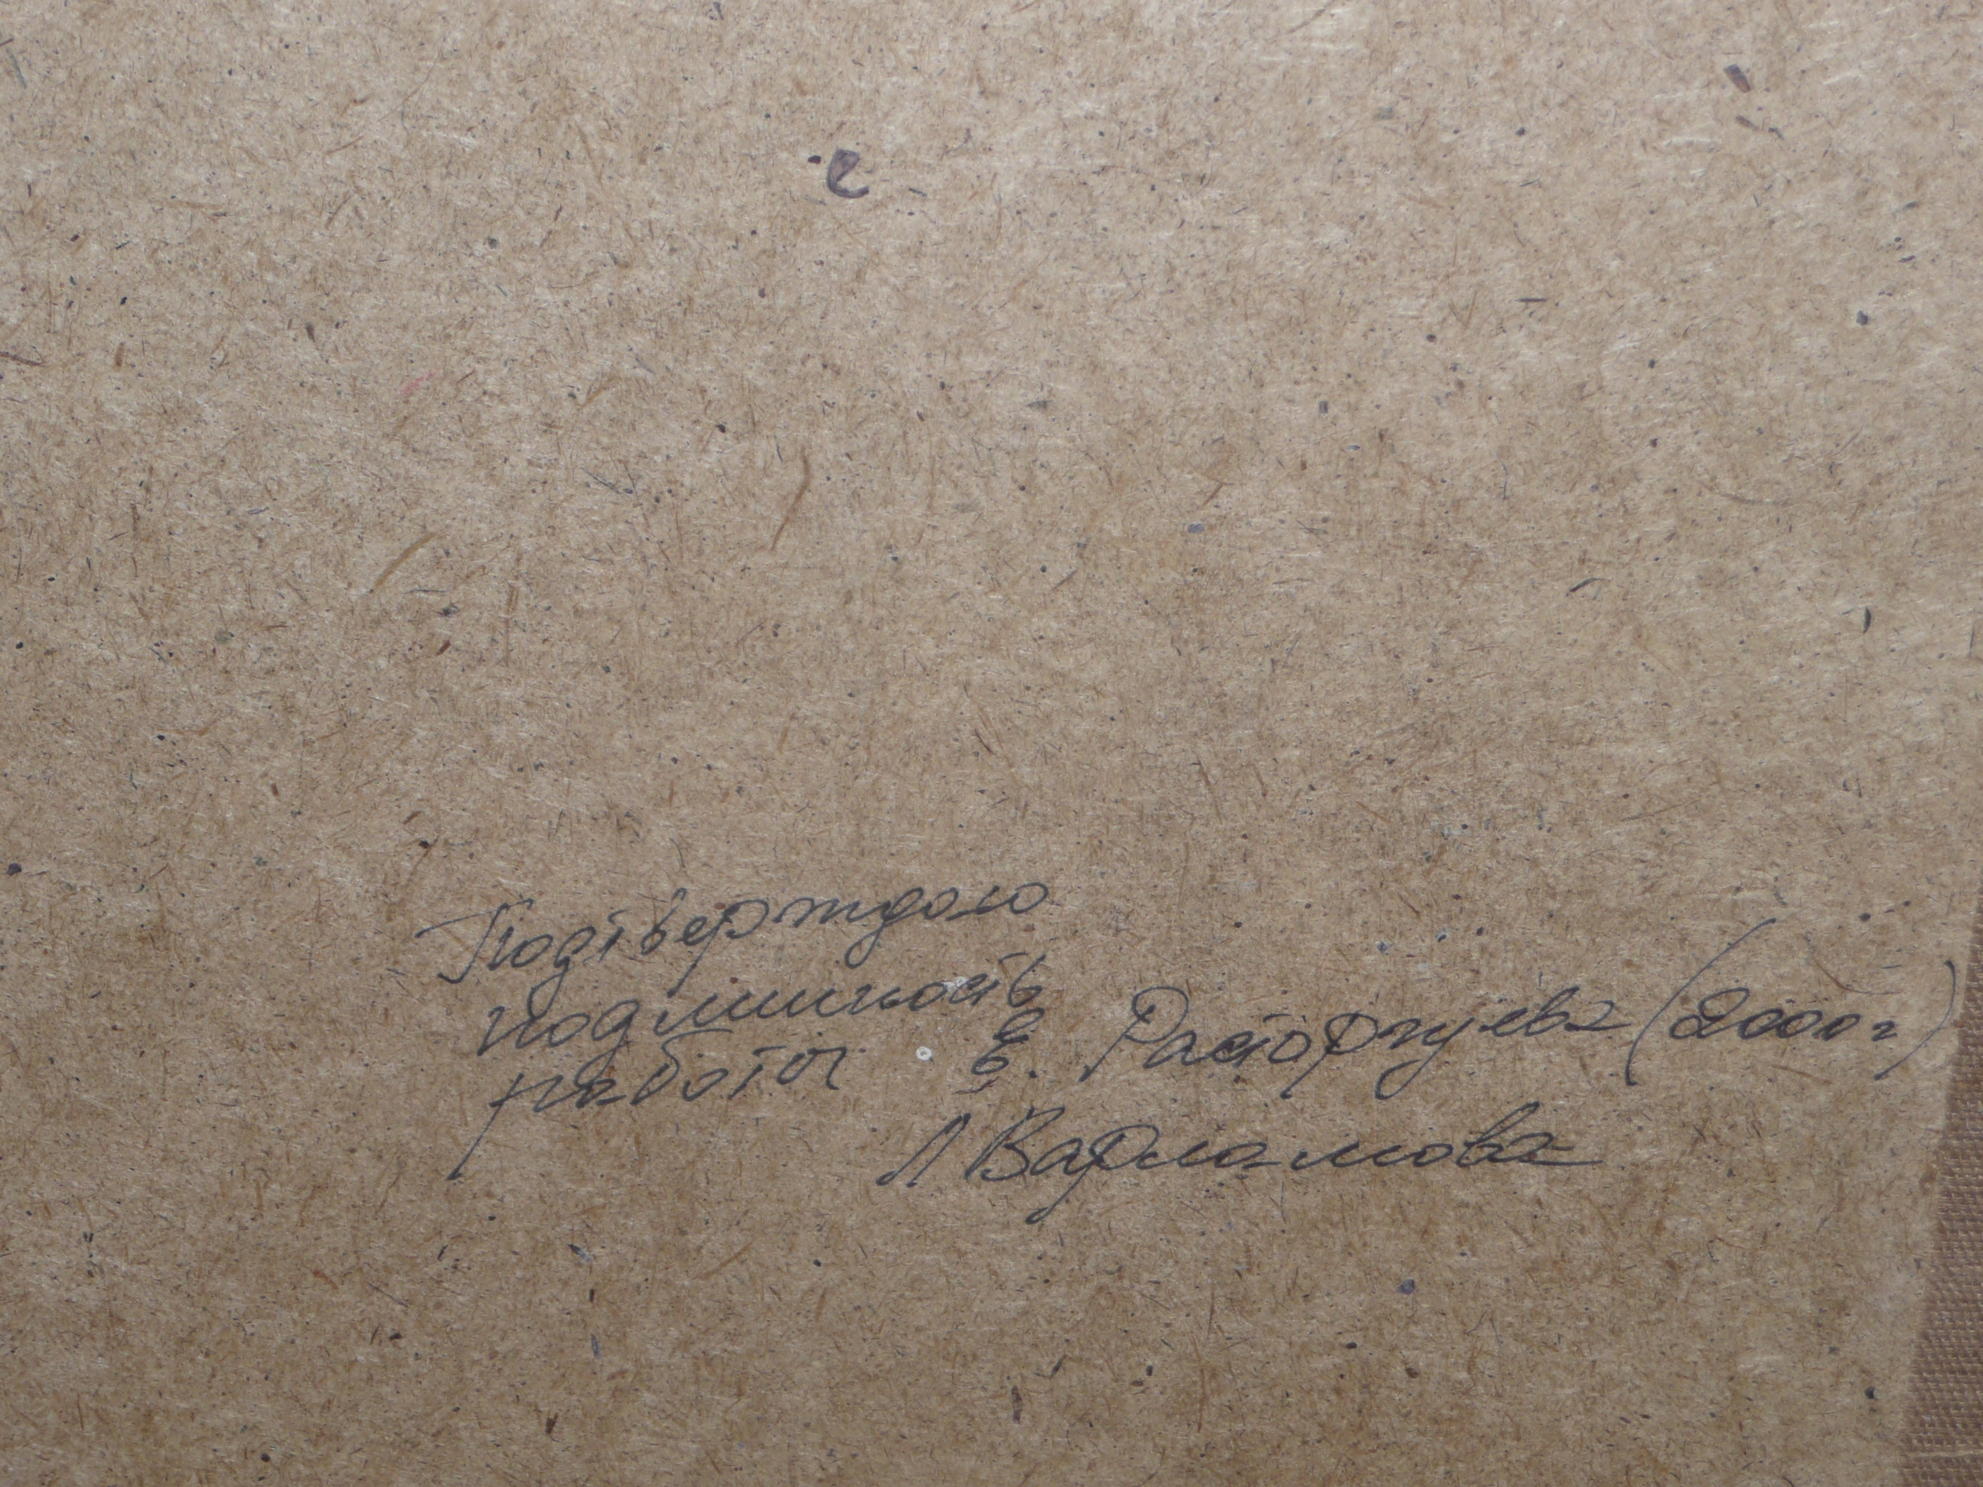 Подтверждаю
подлинность
работы Е. Расторгуева (2000г)
Л Варламова